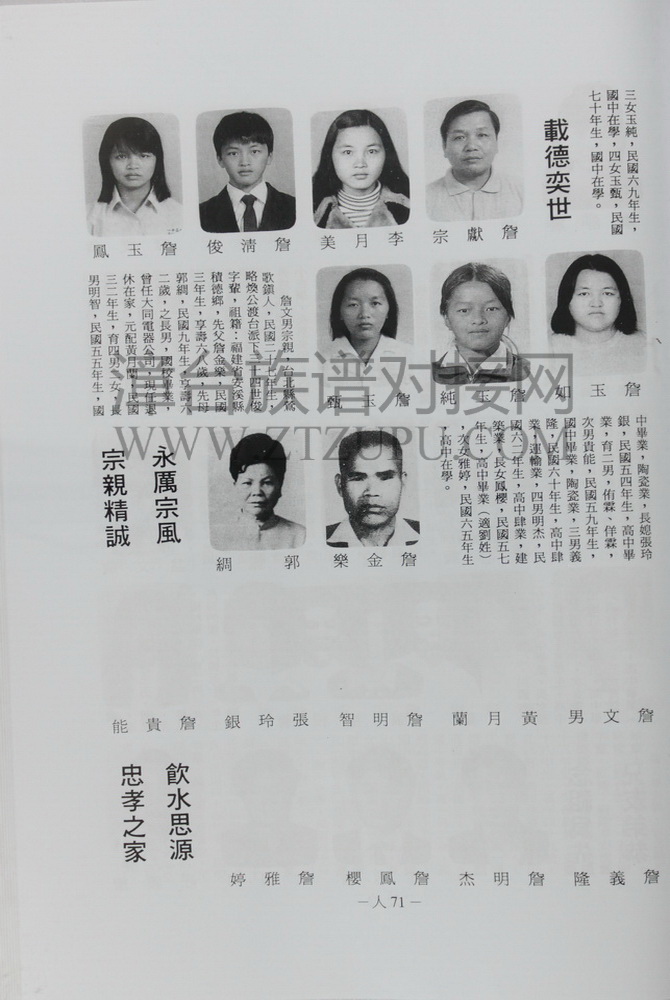 三女玉純，民國六九年生，
國中在學，四女玉甄，民國
七十年生，國中在學。
載德奕世
詹獻宗
李月美
詹清俊
詹玉鳳
詹玉如
詹玉純
詹玉甄
詹文男宗親，台北縣鶯
歌鎮人，民國二十七年生，
略煥公渡台派下二十四世俊
字輩，祖籍：福建省安溪縣
積德鄉，先父詹金樂，民國
三年生，享壽六八歲，先母
郭綢，民國九年生，享壽六
二歲，之長男，國校畢業，
曾任大同電器公司，現任退
休在家，元配黃月蘭，民國
三二年生，育四男二女，長
男明智，民國五五年生，國
中畢業，陶瓷業，長媳張玲
銀，民國五四年生，高中畢
業，育二男，侑霖、佯霖，
次男貴能，民國五九年生，
國中畢業，陶瓷業，三男義
隆，民國六十年生，高中肄
業，運輸業，四男明杰，民
國六二年生，高中肄業，建
築業，長女鳳櫻，民國五七
年生，高中畢業（適劉姓）
，次女雅婷，民國六五年生
，高中在學。
詹金樂
郭綢
永厲宗風
宗親精誠
詹文男
黃月蘭
詹明智
張玲銀
詹貴能
飲水思源
忠孝之家
詹義隆
詹明杰
詹鳳櫻
詹雅婷
－人71－
族谱对接网
WWW.ZTZUPU.COM